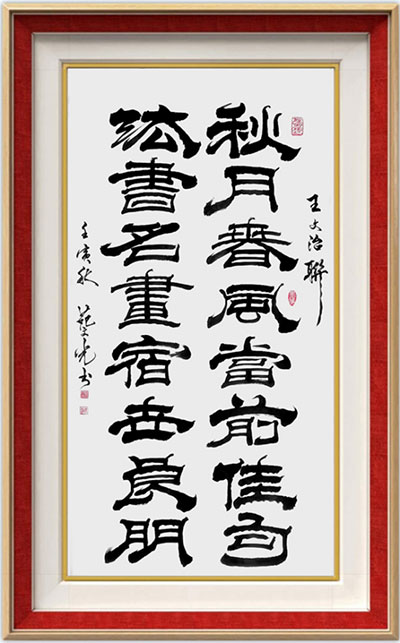 王文治聯
秋月春風當前佳句
法書名畫宿世良朋
壬寅秋